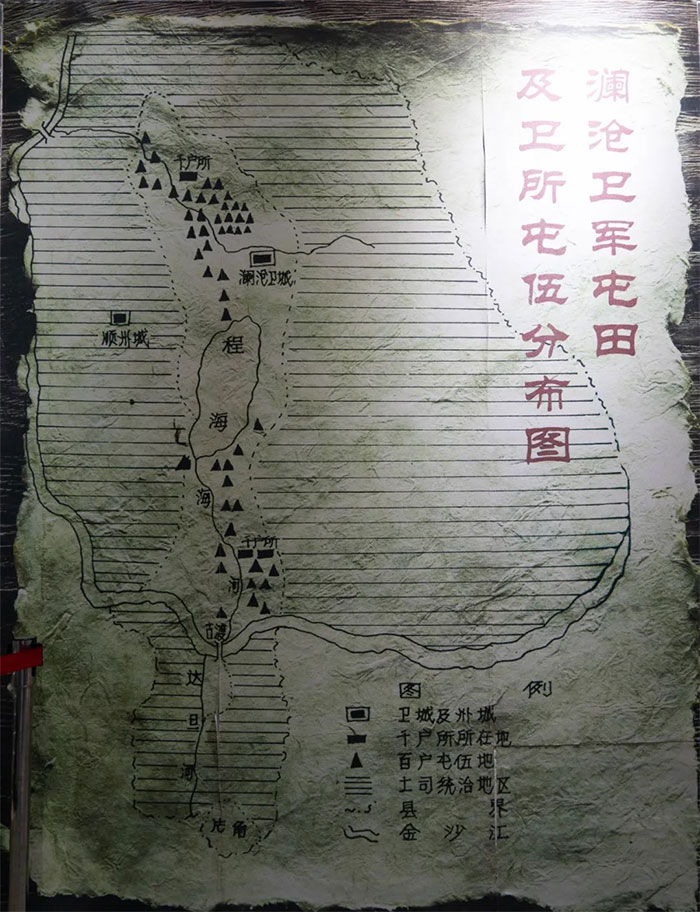 澜沧卫军屯田
及卫所屯伍分布图
千户所
澜沧卫城
顺州城
程海
海河
千户所
古渡
达旦河
片角
图例
卫城及州城
千户所所在地
百户屯伍地
土司统治地区
县界
金沙江